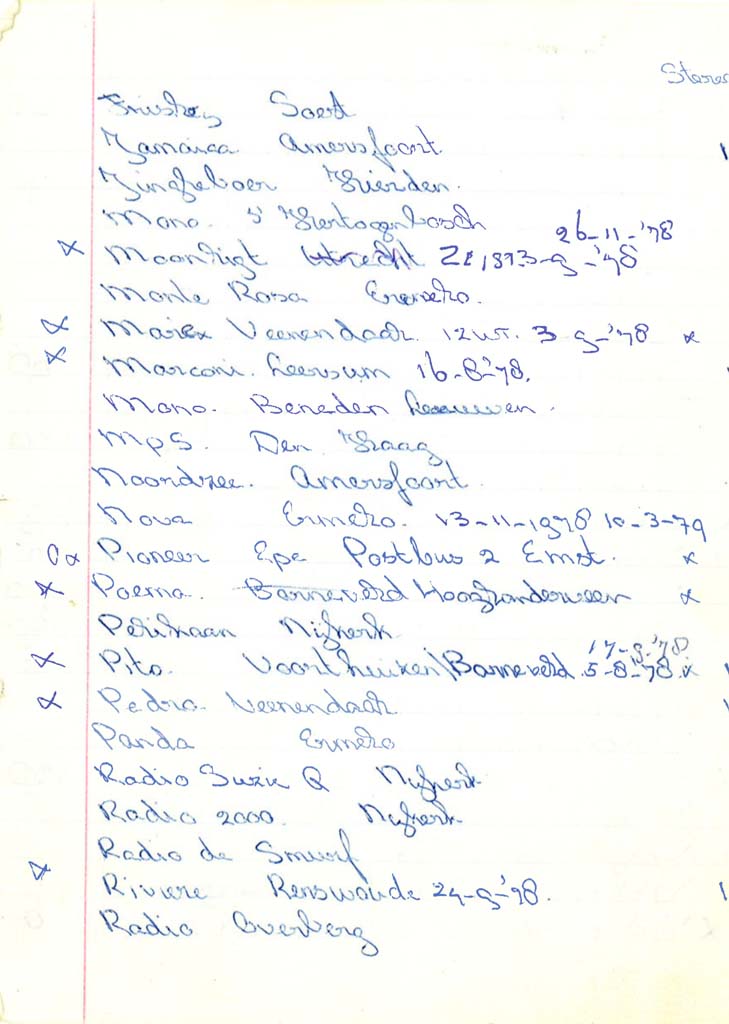 Stereo
Friskey Soest
Jamaica Amersfoort.
Jingleboer Hierden.
Mono. S' Hertogenbosch
26-11-'78
x Moonligt Utrecht 3-9-'78
Monte Rosa Ermelo.
x Marex Veenendaal. 12 ur. 3-9-'78 x
x Marconi. Leersum 16-8-'78.
Mono. Beneden Leeuwen.
Mps. Den Haag
Noordzee. Amersfoort.
Nova Ermelo. 13-11-1978 10-3-79
0x Pioneer Epe Postbus 2 Emst. x
x Poema. Barneveld Hooglanderveen x
Pelikaan Nijkerk
17-9-'78.
x Pito. Voorthuizen\Barneveld. 5-8-'78. x
x Pedro. Veenendaal
Panda Ermelo
Radio Suzie Q Nijkerk
Radio 2000. Nijkerk.
Radio de Smurf
x Riviere Renswoude 24-9-'78.
Radio Overberg